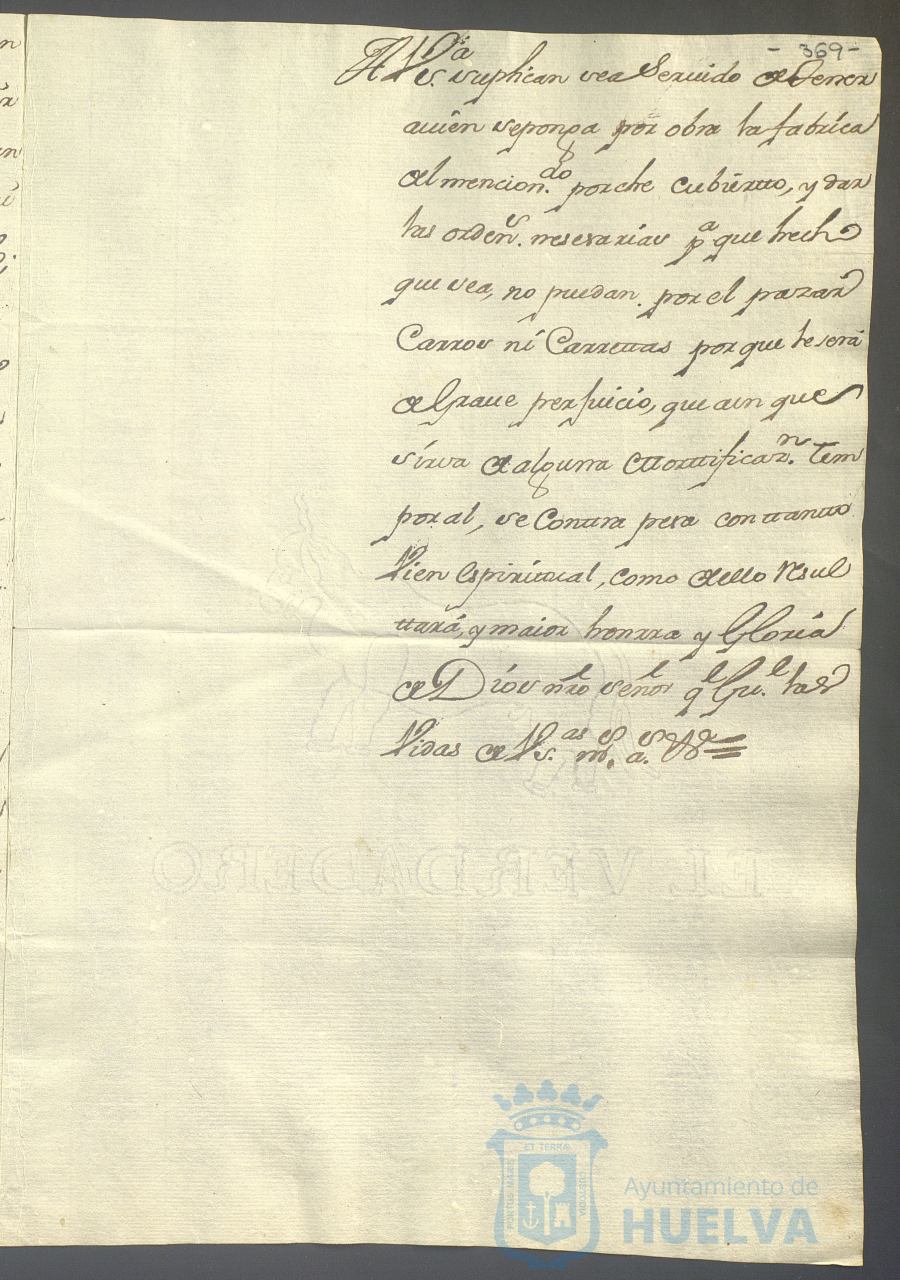 - 369 -
A V.S.ª suplican sea Seruido de tener
auien seponga por obra la fabrica
del mencion.do porche cubiertto, y dar
las orden.s nesesarias p.a que hecho
que sea, no puedan por el pazar
Carros ni Carrettas porque le será
de Graue perjuicio, que aun que
sirva de alguna Mortificaz.n tem
poral, se Conttra pesa con ttantto
Vien Espiritual, como dello Resul
ttará, y maior honrra y Gloria
de Dios nro señor q.e Gu.e las
Vidas de V.S.as m.s a.s &.a =
EL VERDADERO
ET TERRÆ
PORTUS MARIS
CUSTODIA
Ayuntamiento de
HUELVA